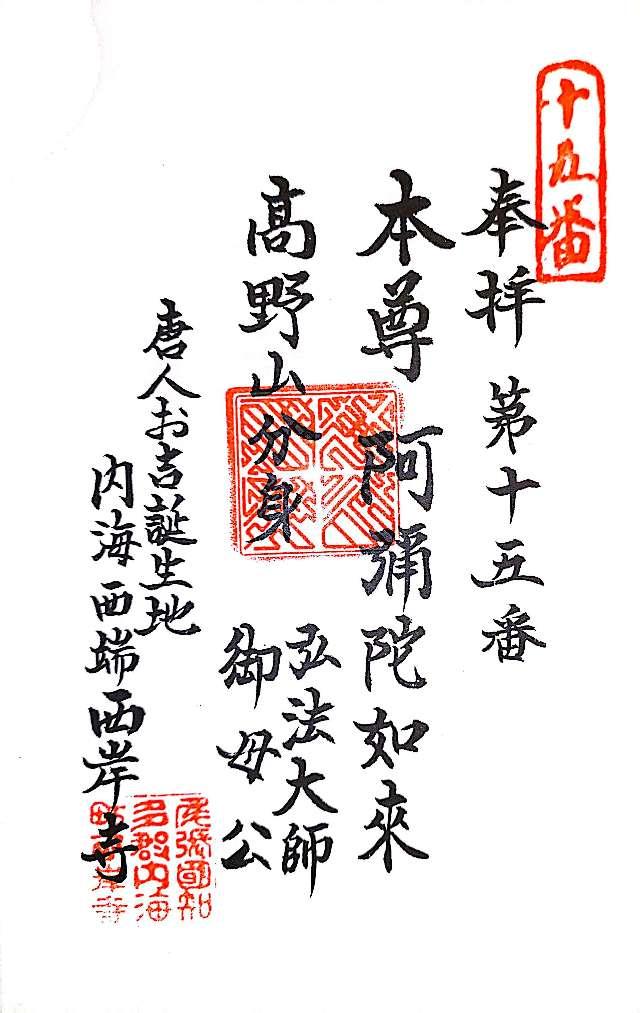 十五番
奉拝 第十五番
本尊 阿彌陀如來
高野山分身
弘法大師
御母公
唐人お吉誕生地
内海西端西岸寺
尾張國知
多郡内海
町西岸寺